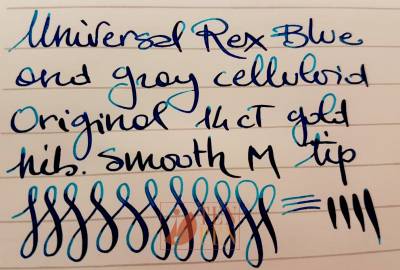 Universal Rex Blue
and gray celluloid
Original 14 CT gold
nib. Smooth M tip